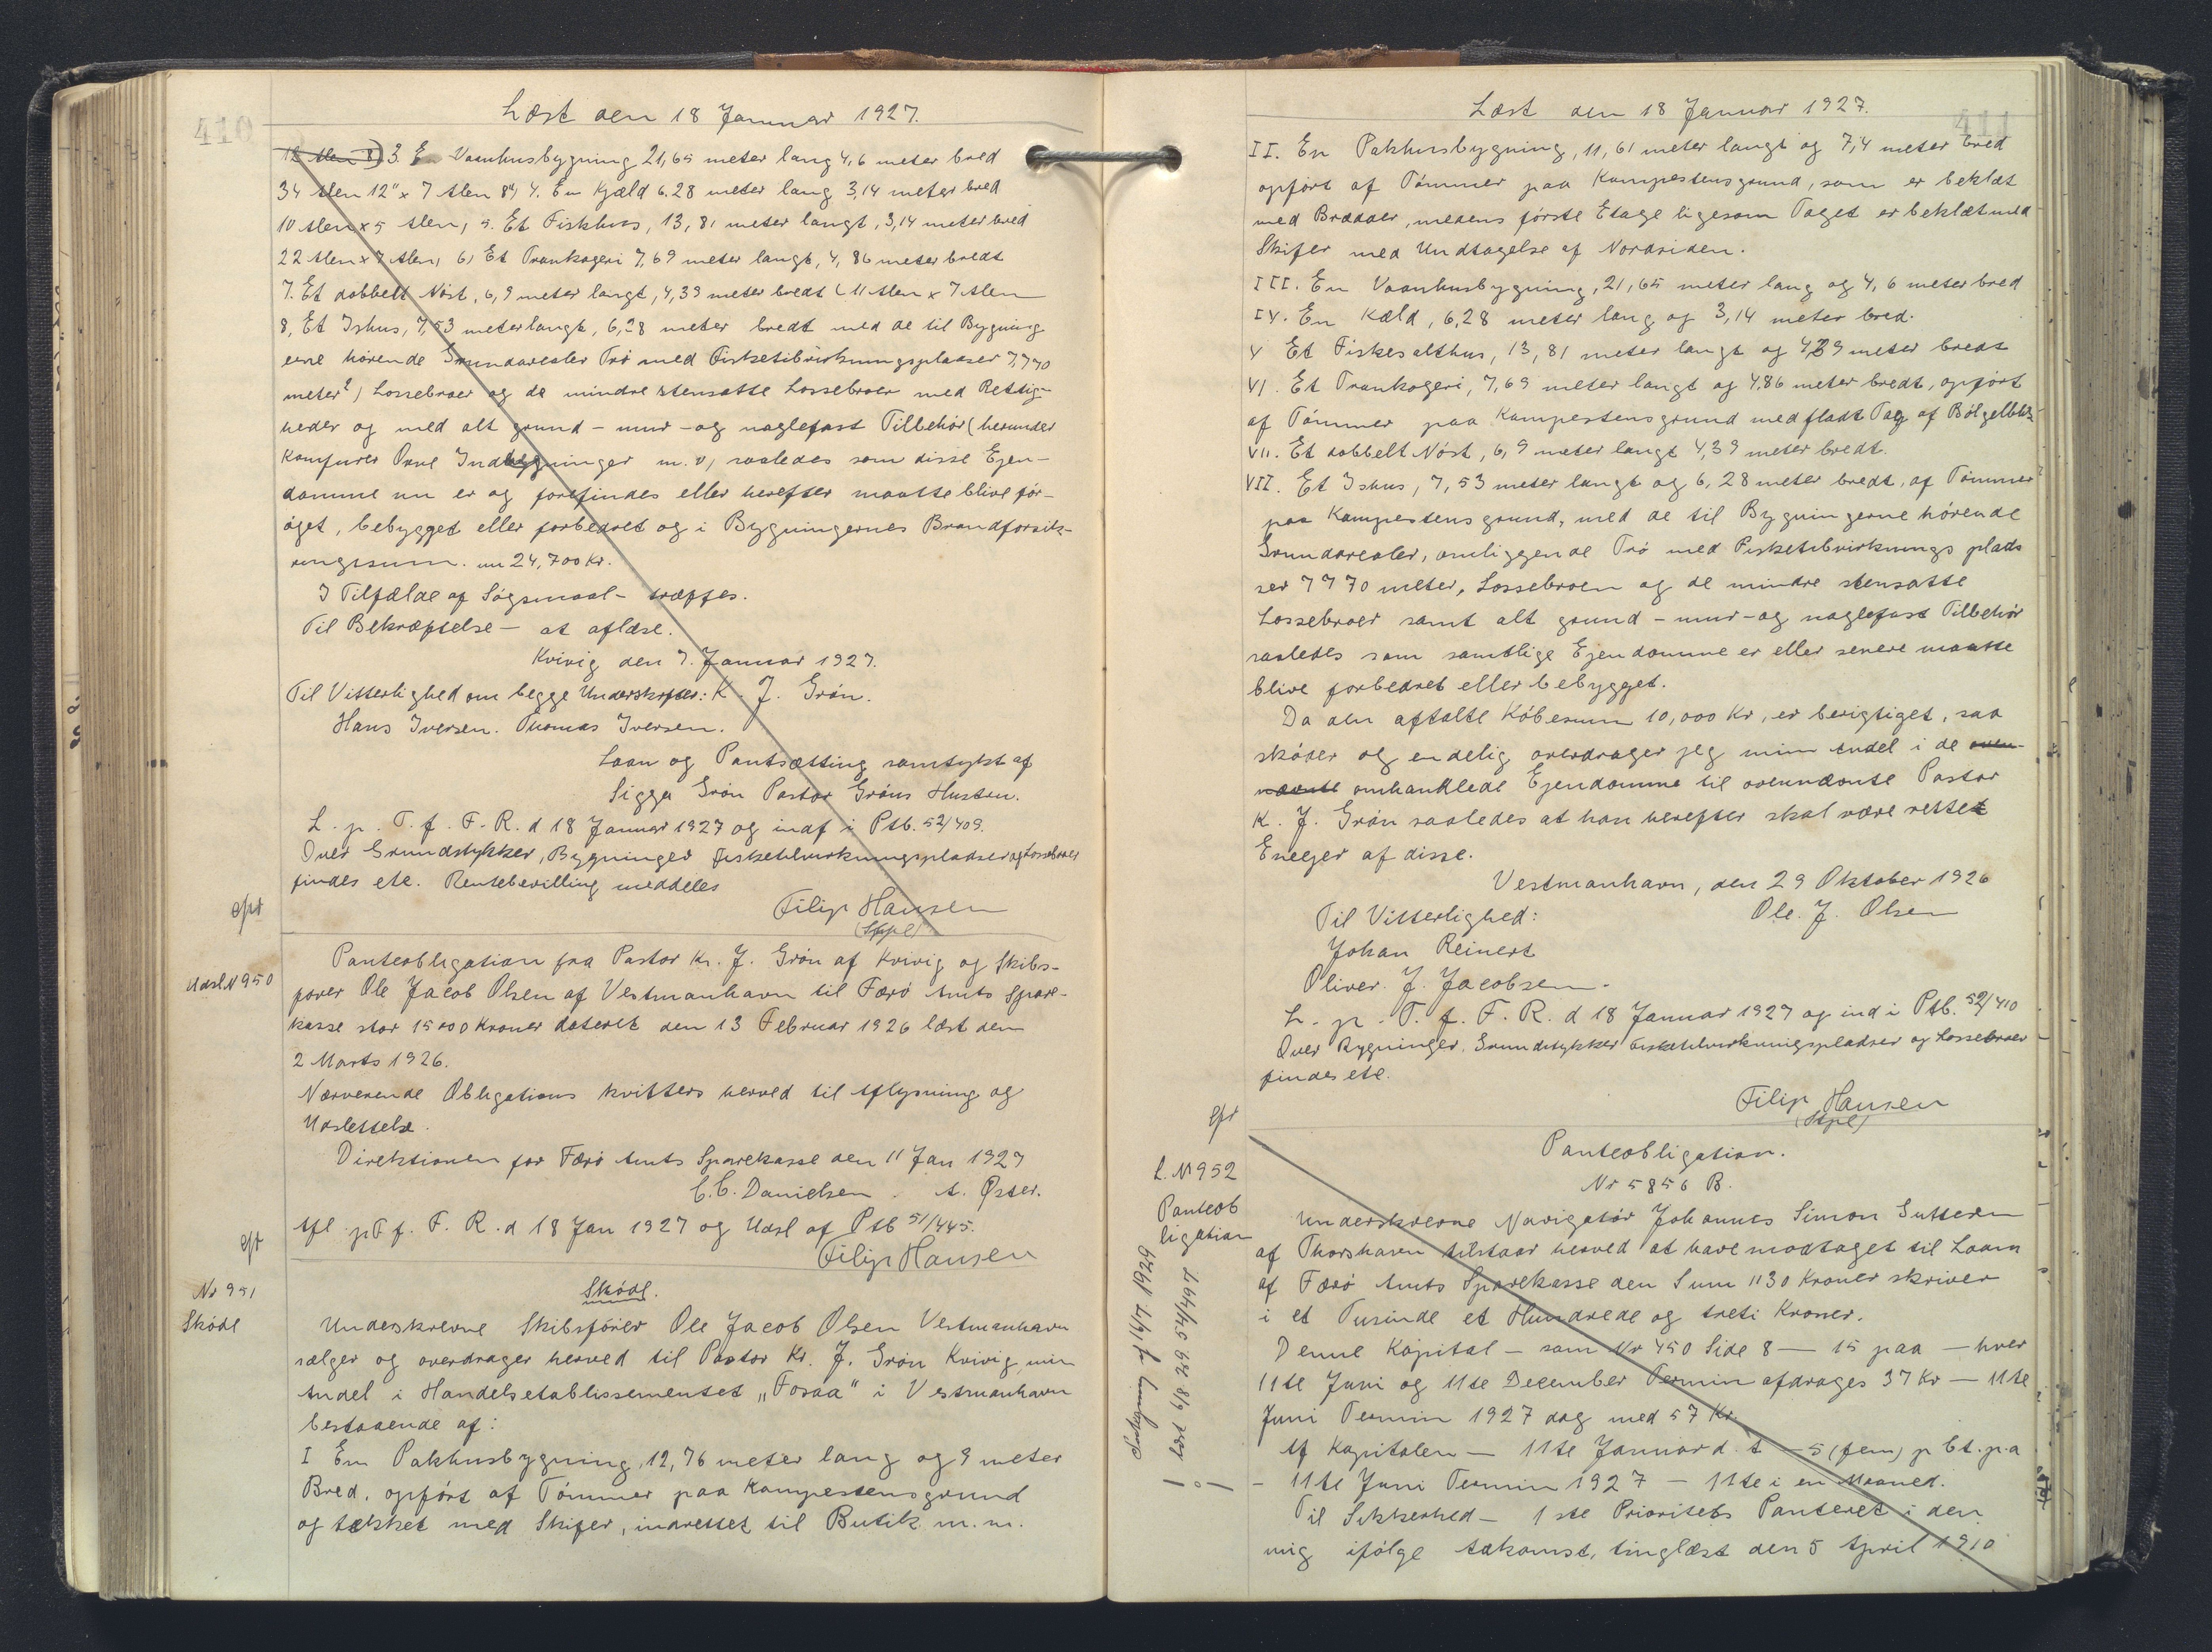 410
Læst den 18 Januar 1927.
12 Alen 8) 3. E Vaanhusbygning 21,65 meter lang 4,6 meter bred
34 Alen 12" x 7 Alen 8") 4. En Kjæld 6.28 meter lang 3,14 meter bred
10 Alen x 5 Alen, 5. Et Fiskhus, 13,81 meter langt, 3,14 meter bred
22 Alen x 7 Alen, 6, Et Trankogeri 7,69 meter langt, 4,86 meter bredt
7. Et dobbelt Nöst, 6,9 meter langt, 4,39 meter bredt (11 Alen x 7 Alen
8, Et Ishus, 7,53 meter langt, 6,28 meter bredt med de til Bygning
erne hörende Grundarealer Trö med Fisketilvirkningspladser 7,770
meter², Lossebroer og de mindre stensatte Lossebroer med Rettig-
heder og med alt grund - mur - og naglefast Tilbehör (herunder
Komfurer Ovne Indhegninger m.v, saaledes som disse Ejen-
domme nu er og forefindes eller herefter maatte blive for-
öget, bebygget eller forbedret og i Bygningernes Brandforsik-
ringssum. nu 24,700 Kr.
I Tilfælde af Sögsmaal - træffes.
Til Bekræftelse - at aflæse.
Kvivig den 7. Januar 1927.
Til Vitterlighed om begge Underskrifter: K. J. Grön.
Hans Iversen. Thomas Iversen.
Laan og Pantsætting samtykt af
Sigga Grön Pastor Gröns Hustru.
L. p. T. f. F. R. d 18 Januar 1927 og indf i Ptb. 52/409.
Over Grundstykker, Bygninger Fisketilvirkningspladser og Lossebroer
findes ete. Rentebevilling meddeles
Filip Hansen
(Stpl)
efr
Udsl N 950
Panteobligation fra Pastor Kr. J. Grön af Kvivig og Skibs-
förer Ole Jacob Olsen af Vestmanhavn til Færö Amts Spare-
kasse stor 15000 Kroner dateret den 13 Februar 1926 læst den
2 Marts 1926.
Nærverende Obligations kvitters herved til Aflysning og
Udslettelse.
Direktionen for Færö Amts Sparekasse den 11 Jan 1927
C. C. Danielsen. A. Øster.
Afl. p T f. F. R. d 18 Jan 1927 og Udsl af Ptb 51/445.
Filip Hansen
efr
Nr 951
Sköde
Sköde.
Underskrevne Skibsförer Ole Jacob Olsen Vestmanhavn
sælger og overdrager herved til Pastor Kr. J. Grön Kvivig min
Andel i Handelsetablissementet „Fosaa" i Vestmanhavn
bestaaende af:
I En Pakhusbygning, 12,76 meter lang og 9 meter
Bred, opfört af Tömmer paa Kampestensgrund
og tækket med Skifer, indrettet til Butik m.m.
411
Læst den 18 Januar 1927.
II. En Pakhusbygning, 11,61 meter langt og 7,4 meter bred
opfört af Tömmer paa Kampestensgrund, som er beklæt
med Brædder, medens förste Etage ligesom Taget er beklæt med
Skifer med Undtagelse af Nordsiden.
III. En Vaanhusbygning, 21,65 meter lang og 4,6 meter bred
IV. En Kæld, 6,28 meter lang og 3,14 meter bred.
V Et Fiskesalthus, 13,81 meter langt og 4,39 meter bredt
VI. Et Trankogeri, 7,69 meter langt og 4,86 meter bredt, opfört
af Tömmer paa Kampestensgrund med fladt Tag af Bölgeblik
VII. Et dobbelt Nöst, 6,9 meter langt 4,39 meter bredt.
VII. Et Ishus, 7,53 meter langt og 6,28 meter bredt, af Tömmer
paa Kampestensgrund, med de til Bygningerne hörende
Grundarealer, omliggende Trö med Fisketilvirknings plads
ser 7770 meter², Lossebroen og de mindre stensatte
Lossebroer samt alt grund - mur - og naglefast Tilbehör
saaledes som samtlige Ejendomme er eller senere maatte
blive forbedret eller bebygget.
Da den aftalte Köbesum 10,000 Kr, er berigtiget, saa
sköder og endelig overdrager jeg min Andel i de oven-
nævnte omhandlede Ejendomme til ovennævnte Pastor
K. J. Grön saaledes at han herefter skal være rettet
Eneejer af disse.
Vestmanhavn, den 29 Oktober 1926
Til Vitterlighed: Ole. J. Olsen
Johan Reinert
Oliver. J. Jacobsen.
L. p. T. f. F. R. d 18 Januar 1927 og ind i Ptb. 52/410
Over Bygninger. Grundstykker Fisketilvirkningspladser og Lossebroer
findes ete.
Filip Hansen
(Stpl)
efr
L. N 952
Panteob
ligation
Panteobligation.
Nr 5856 B.
Underskrevne Navigatör Johannes Simon Guttesen
af Thorshavn tilstaar herved at have modtaget til Laan
af Færö Amts Sparekasse den Sum 1130 Kroner skriver
i et Tusinde et Hundrede og treti Kroner.
Denne Kapital - som Nr 450 Side 8 - 15 paa - hver
11te Juni og 11te December Termin afdrages 37 Kr - 11te
Juni Termin 1927 dog med 57 Kr.
Af Kapitalen - 11te Januar d. A - 5 (fem) p Ct. p.a
- 11te Juni Termin 1927 - 11te i en Maaned.
Til Sikkerhed - 1ste Prioritets Panteret i den
mig ifölge Adkomst, tinglæst den 5 April 1910